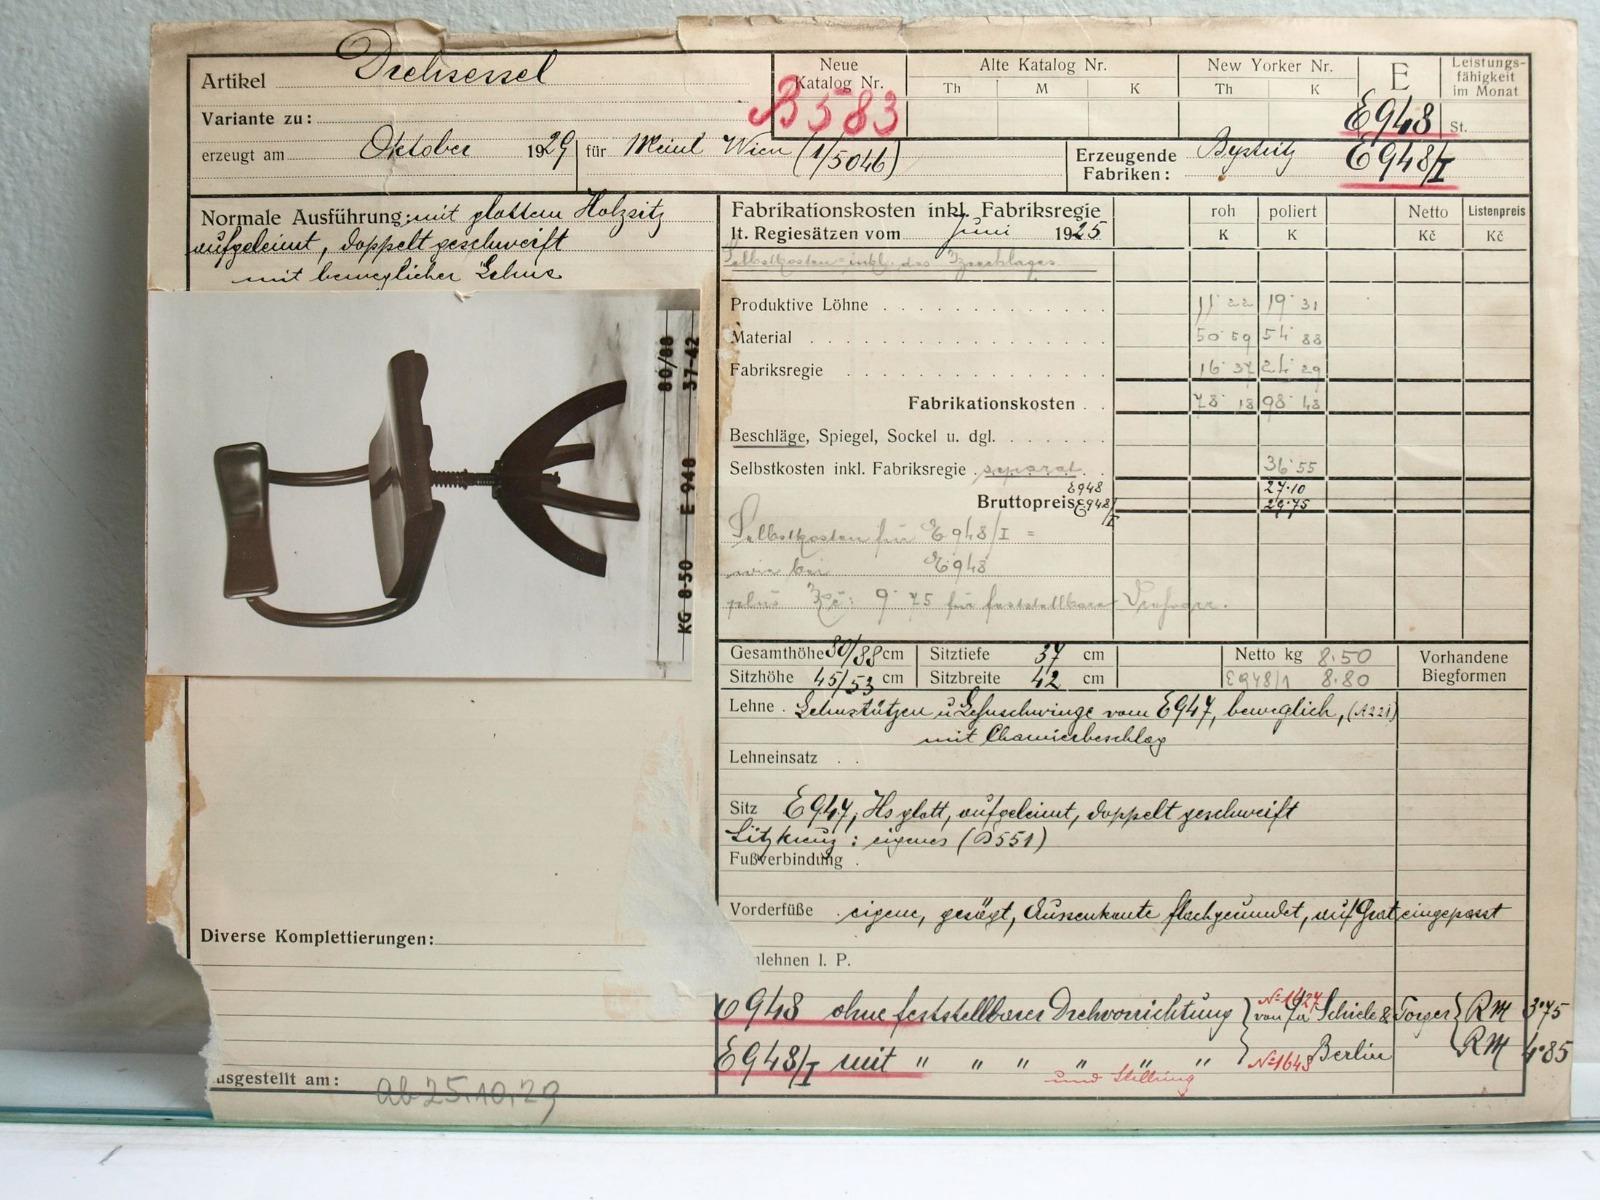 Artikel Drehsessel
Neue Katalog Nr.
B 583
Alte Katalog Nr.
Th M K
New Yorker Nr.
Th K
E
E948
Leistungs-
fähigkeit
im Monat
St.
Variante zu:
erzeugt am Oktober 1929 für Meinl Wien (1/5046)
Erzeugende
Fabriken: Bystritz
E948/I
Normale Ausführung: mit glattem Holzsitz
aufgeleimt, doppelt geschweift
mit beweglicher Lehne
80/88 37-42
E-948
KG 8-50
Diverse Komplettierungen:
usgestellt am: ab 25.10.29
Fabrikationskosten inkl. Fabriksregie
lt. Regiesätzen vom Juni 1925
roh poliert Netto Listenpreis
K K Kč Kč
Selbstkosten inkl. des
Produktive Löhne 11 22 19 31
Material 50 59 54 88
Fabriksregie 16 37 24 29
Fabrikationskosten 78 18 98 48
Beschläge, Spiegel, Sockel u. dgl.
Selbstkosten inkl. Fabriksregie separat 36 55
Bruttopreis E948 27·10
E948/I 29·75
Selbstkosten für E948/I =
wie bei E948
plus Kč: 9 75 für feststellbare
Gesamthöhe 80/88 cm Sitztiefe 37 cm Netto kg 8.50
Sitzhöhe 45/53 cm Sitzbreite 42 cm E948/1 8.80
Vorhandene
Biegformen
Lehne . Lehnstützen u Lehnschwinge vom E947, beweglich, (A221)
mit Charnierbeschlag
Lehneinsatz
Sitz E947, Hs glatt, aufgeleimt, doppelt geschweift
Sitzkreuz: eigenes (D551)
Fußverbindung
Vorderfüße eigene, gesägt, Aussenkante flachgerundet, auf Grat eingepasst
nlehnen l. P.
E948 ohne feststellbarer Drehvorrichtung } No 1627 von Fa Schiele & { RM 3·75
E948/I mit " " " " " } No 1648 Berlin RM 4·85
und Stellring